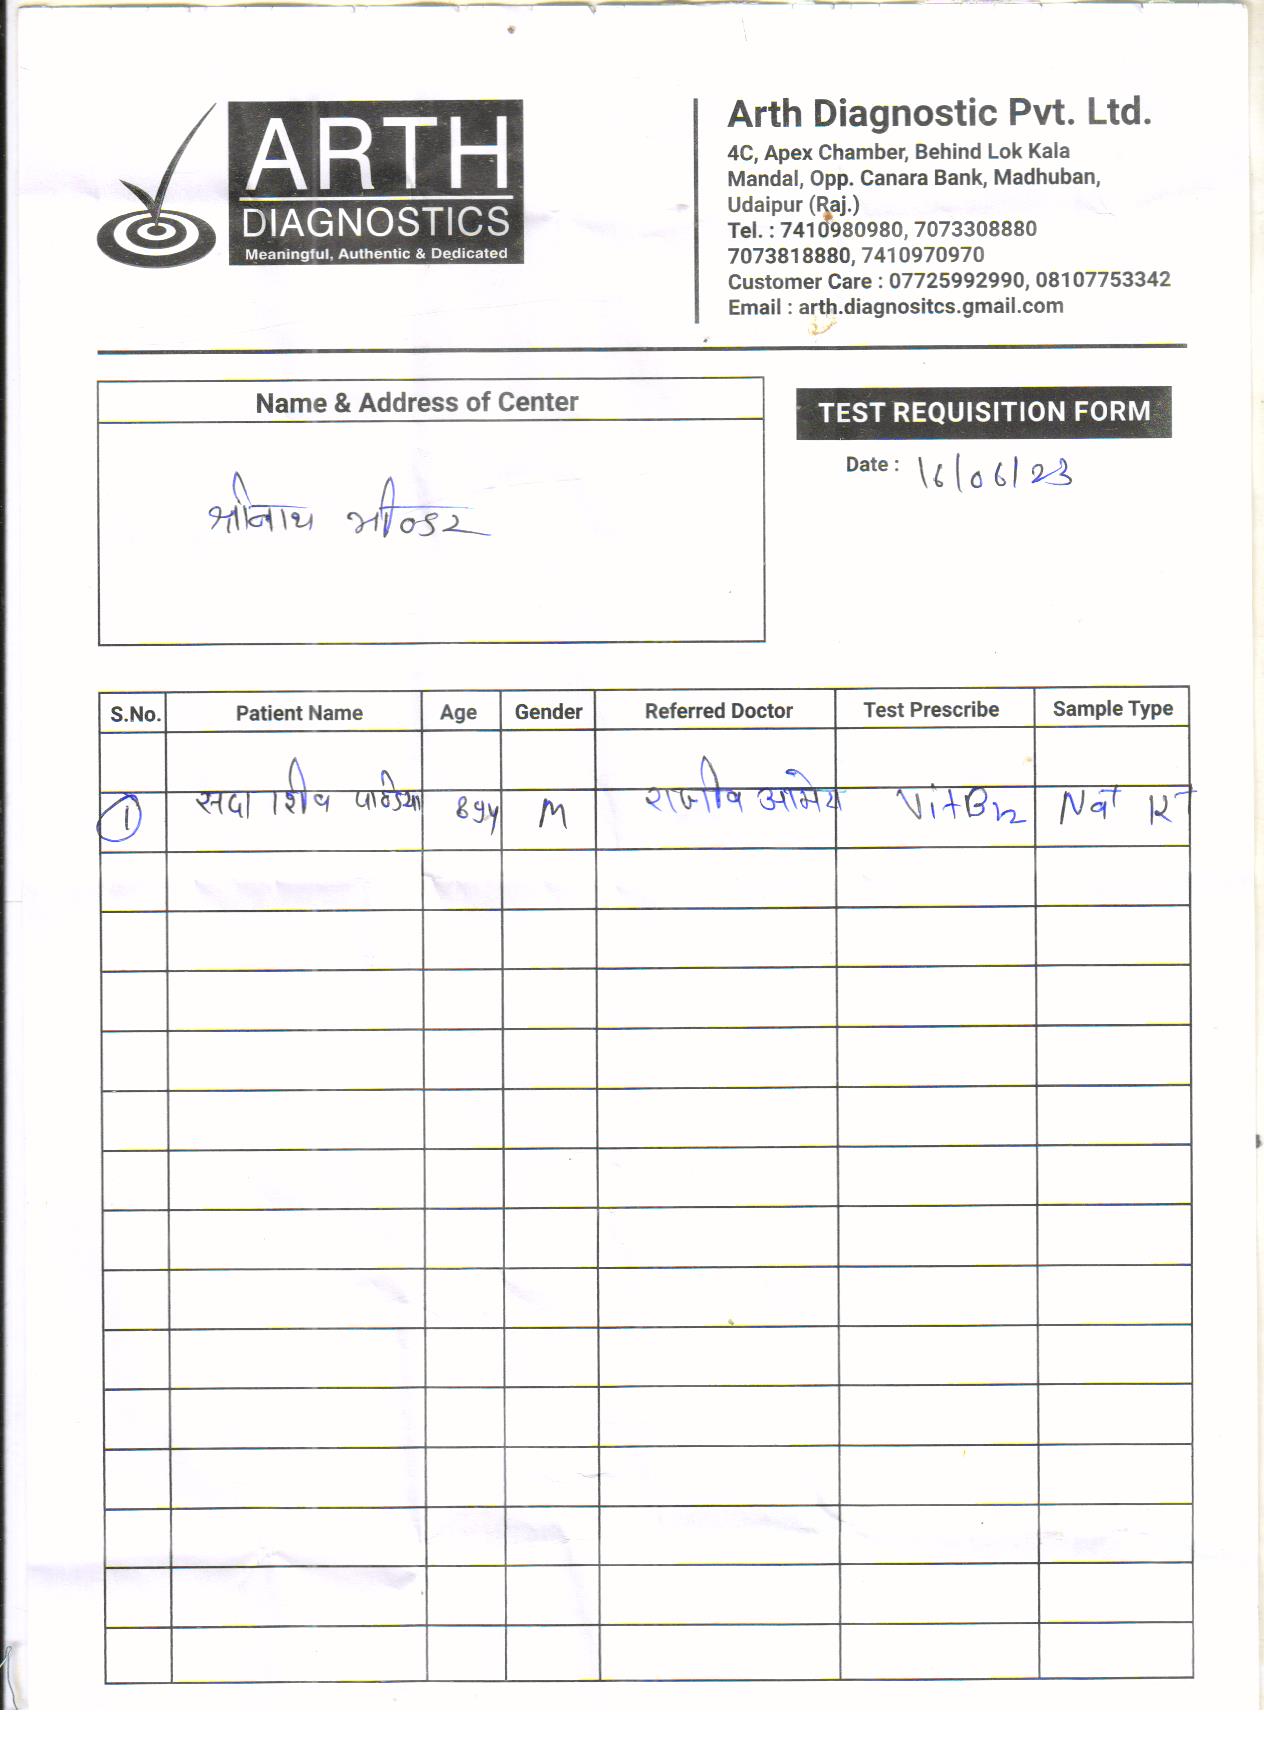 ARTH
DIAGNOSTICS
Meaningful, Authentic & Dedicated
Arth Diagnostic Pvt. Ltd.
4C, Apex Chamber, Behind Lok Kala
Mandal, Opp. Canara Bank, Madhuban,
Udaipur (Raj.)
Tel. : 7410980980, 7073308880
7073818880, 7410970970
Customer Care : 07725992990, 08107753342
Email : arth.diagnositcs.gmail.com
Name & Address of Center
श्रीनाथ भीण्डर
TEST REQUISITION FORM
Date : 16/06/23
S.No. Patient Name Age Gender Referred Doctor Test Prescribe Sample Type
1 सदा शिव पाण्डिया M राजीव Vit B12 Na+ K+